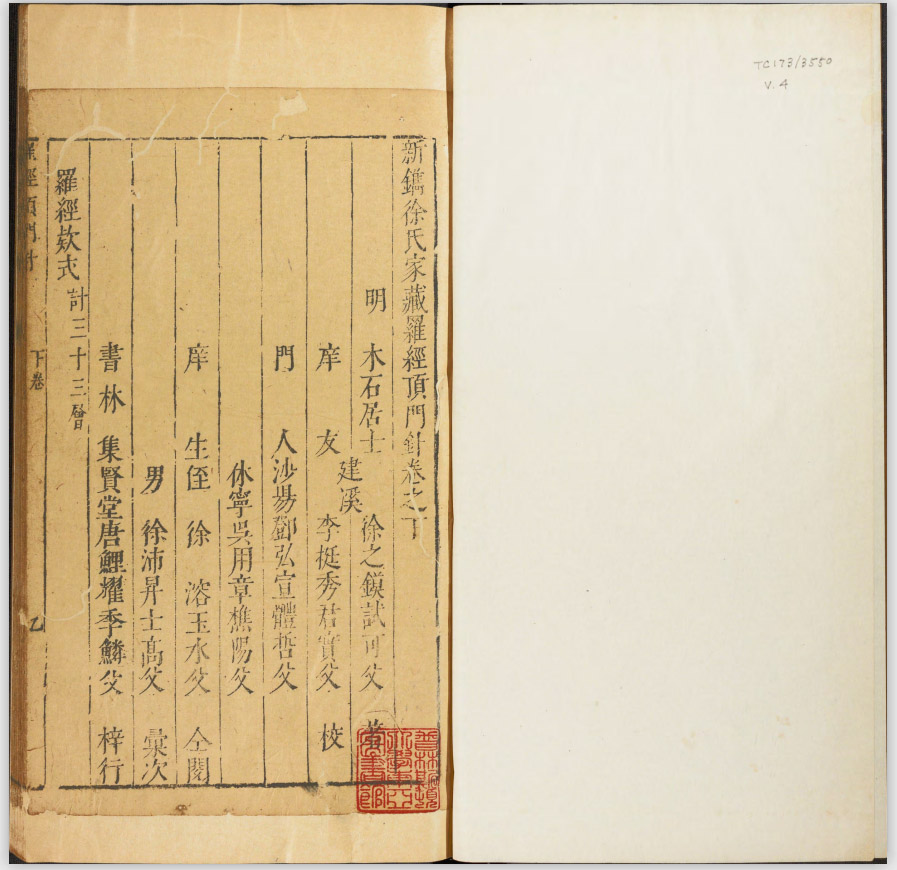 TC173/3550
V. 4
新鐫徐氏家藏羅經頂門針卷之下
明 木石居士 建溪 徐之鏌試可父 著
庠友 李挺秀君實父 校
門人沙昜鄧弘宣體哲父
休寧吳用章樵陽父
庠生侄徐溶玉水父 仝閱
男徐沛昇士高父 彙次
書林集賢堂唐鯉耀季鱗父 梓行
羅經欵式 計三十三層
羅經頂門針 下卷 乙